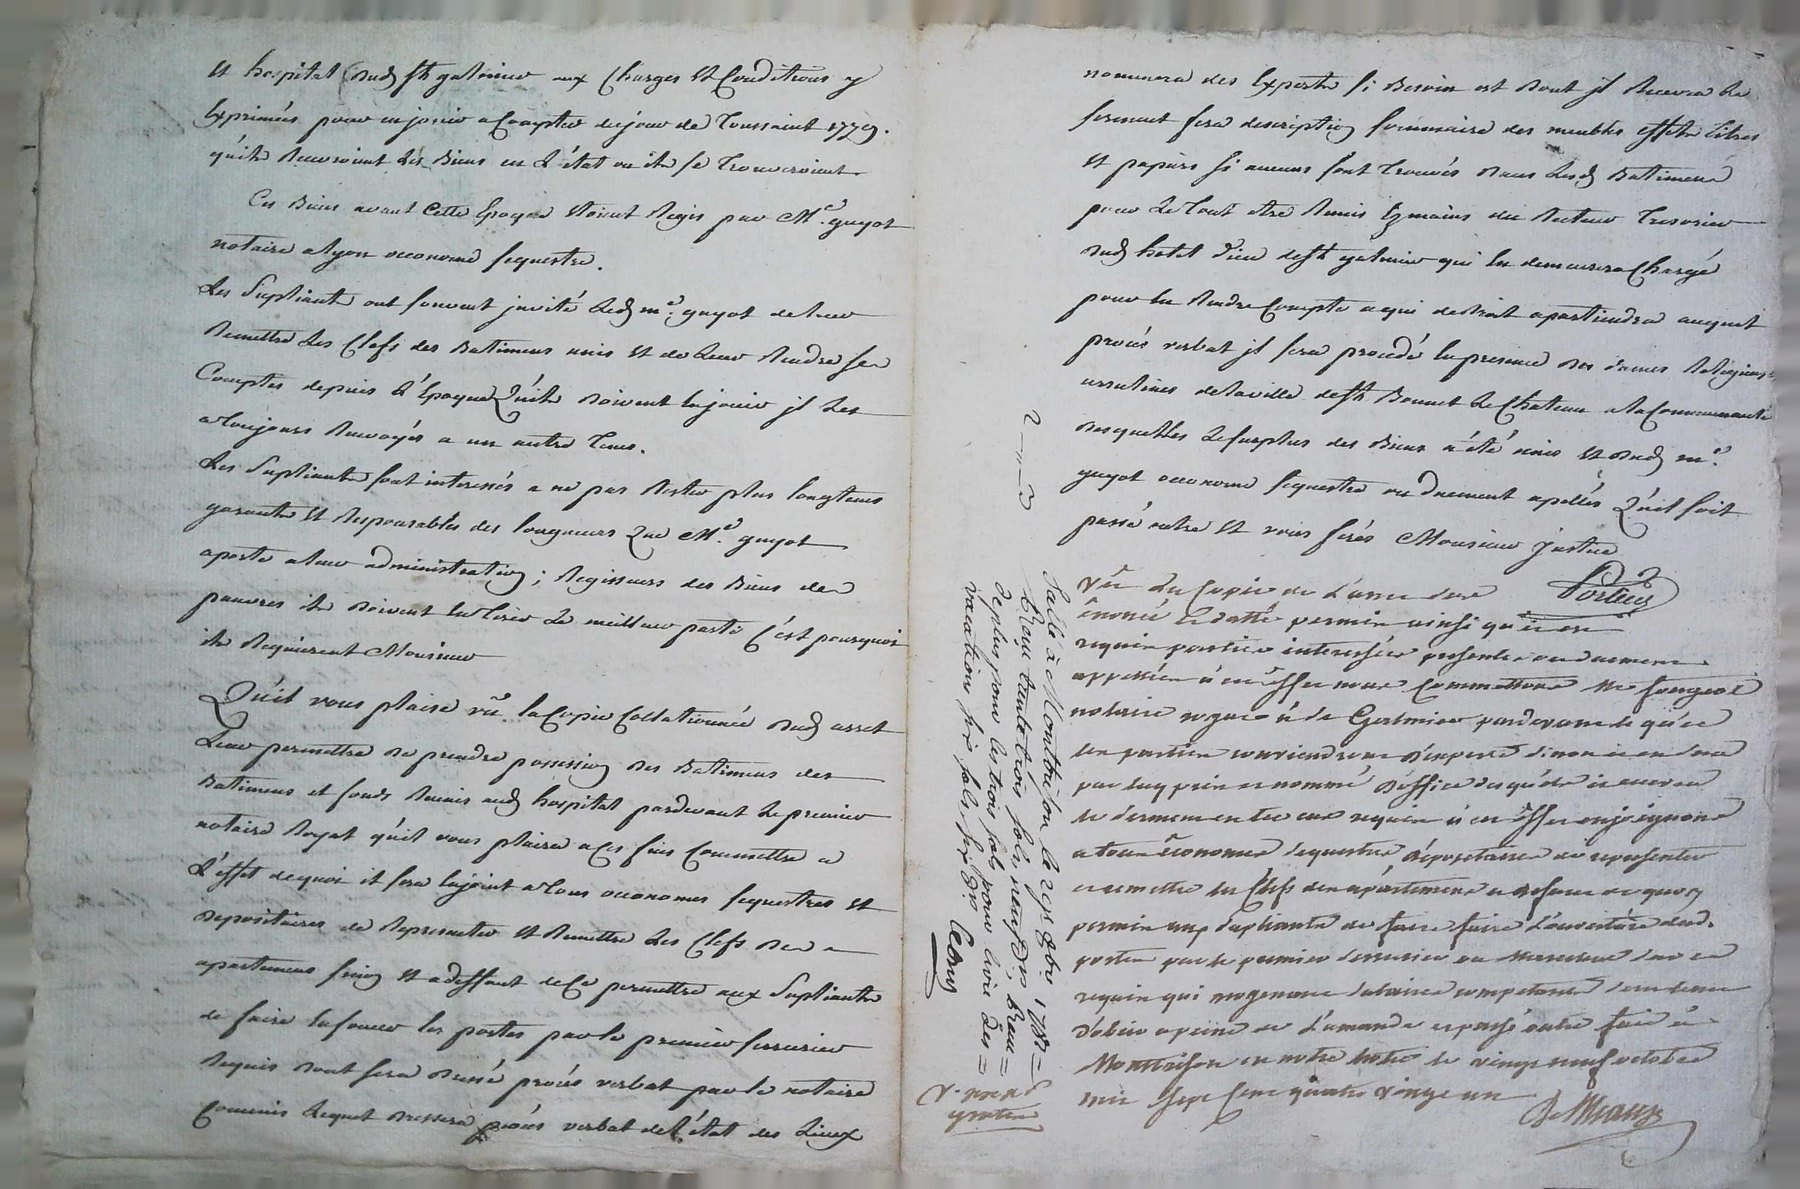 et hospital dud. st galmier aux Charges et Conditions y
Exprimées pour en jouir a Compter du jour de Toussaint 1779.
qu'ils Recevroient Les Biens en L'état ou ils se Trouveroient
Ces Biens avant Cette Epoque étoient Regis par Me. guyot
notaire a lyon œconome sequestre.
Les Supliants ont souvent invité Led. me. guyot de leur
Remettre Les Clefs des Batimens unis et de Leur Rendre ses
Comptes depuis L'Epoque Qu'ils doivent en jouir il Les
a Toujours Renvoyés a un autre Tems.
Les Supliants sont interessés a ne pas Rester plus longtems
garants et Responsables des longueurs Que Me. guyot
aporte a leur administration ; Regisseurs des Biens des
pauvres ils doivent en Tirer Le meilleur parti C'est pourquoi
ils Requierent Monsieur
Qu'il vous plaise vû la Copie Collationnée dud. arret
Leur permettre de prendre possession des Batimens des
Batimens et fonds Réunis aud. hospital pardevant Le premier
notaire Royal qu'il vous plaira a Ces fins Commettre a
L'effet de quoi il sera Enjoint a Tous œconomes sequestres et
depositaires de Représenter et Remettre Les Clefs des
apartemens sinon et a deffaut de Ce permettre aux Supliants
de faire Enfoncer les portes par le premier serrurier
Requis dont sera dressé procés verbal par le notaire
Commis Lequel dressera procés verbal de L'état des Lieux
nommera des Experts si Besoin est dont il Recevra Le
serment fera description sommaire des meubles effets Titres
et papiers si aucuns sont Trouvés dans Lesd. Batimens
pour Le Tout etre Remis Ez mains du Recteur Tresorier
dud. hotel Dieu de st galmier qui En demeurera Chargé
pour En Rendre Compte a qui de droit apartiendra auquel
procés verbal il sera procédé En presence des dames Religieuses
urselines de la ville de st Bonnet Le Chateau a la Communauté
desquelles Le surplus des Biens a été unis et dud. me.
guyot œconome sequestre ou duement apellés Qu'il soit
passé outre et vous ferés Monsieur justice
Portier
Vû La Copie de L'arret
énoncé et datté permis ainsi qu'il est
requis parties interessées presentes ou duement
appellées à cet effet nous Commettons Me
notaire royal à st Galmier pardevant le quel
les parties conviendront d'experts sinon il en sera
par luy pris et nommé d'office desquels il recevra
le serment en tel cas requis à cet effet enjoignons
a tous œconomes sequestres dépositaires de representer
et remettre les Clefs des apartemens a deffaut de quoy
permis aux Supliants de faire faire L'ouverture desd.
portes par le premier serrurier ou marechal sur ce
requis qui moyenant salaire competant sera tenu
d'obeir a peine de L'amande et passé outre fait à
Montbrison en notre hotel le vingt neuf octobre
mil Sept Cent quatre vingt un
De Meaux
Sellé à Montbrison le 1781
Reçu trente trois sols neuf drs,
de plus pour les trois sols pour livre des
vacations six sols six drs